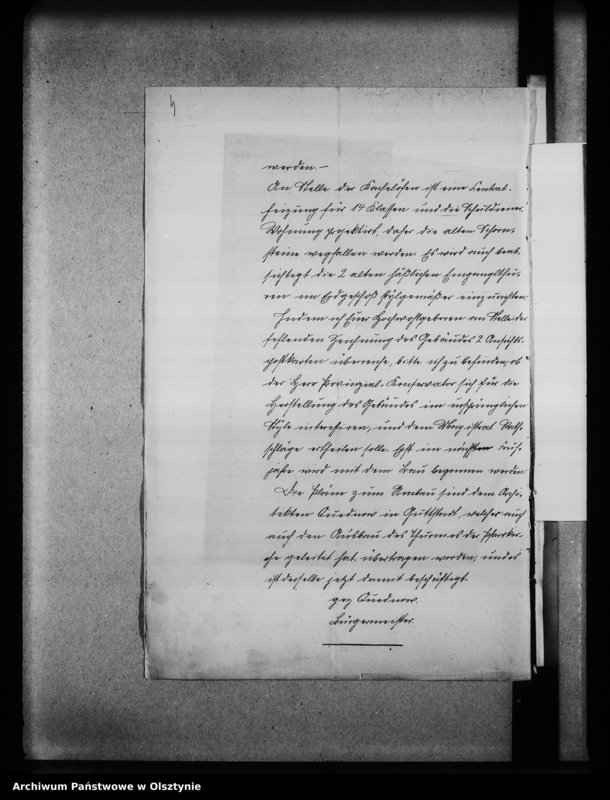 werden. –
An Stelle der Kachelöfen ist eine Central-
heizung für 14 Klassen und die Schuldiener
Wohnung projektirt, daher die alten Schorn-
steine wegfallen werden. Es wird auch beab-
sichtigt die 2 alten häßlichen Eingangsthü-
ren im Erdgeschoß stylgemäßer einzurichten.
Indem ich Euer Hochwohlgeboren an Stelle der
fehlenden Zeichnung des Gebäudes 2 Ansichts-
postkarten überreiche, bitte ich zu befinden, ob
der Herr Provinzial-Konservator sich für die
Herstellung des Gebäudes im ursprünglichen
Style interessiren, und dem Magistrat Rath-
schläge ertheilen solle. Erst im nächsten Früh-
jahr wird mit dem Bau begonnen werden.
Die Pläne zum Umbau sind dem Archi-
tekten Quednow in Guttstadt, welcher auch
auch den Ausbau des Thurmes der Pfarrkir-
che geleitet hat, übertragen worden, und es
ist derselbe jetzt damit beschäftigt.
gez Quednow.
Bürgermeister.
Archiwum Państwowe w Olsztynie